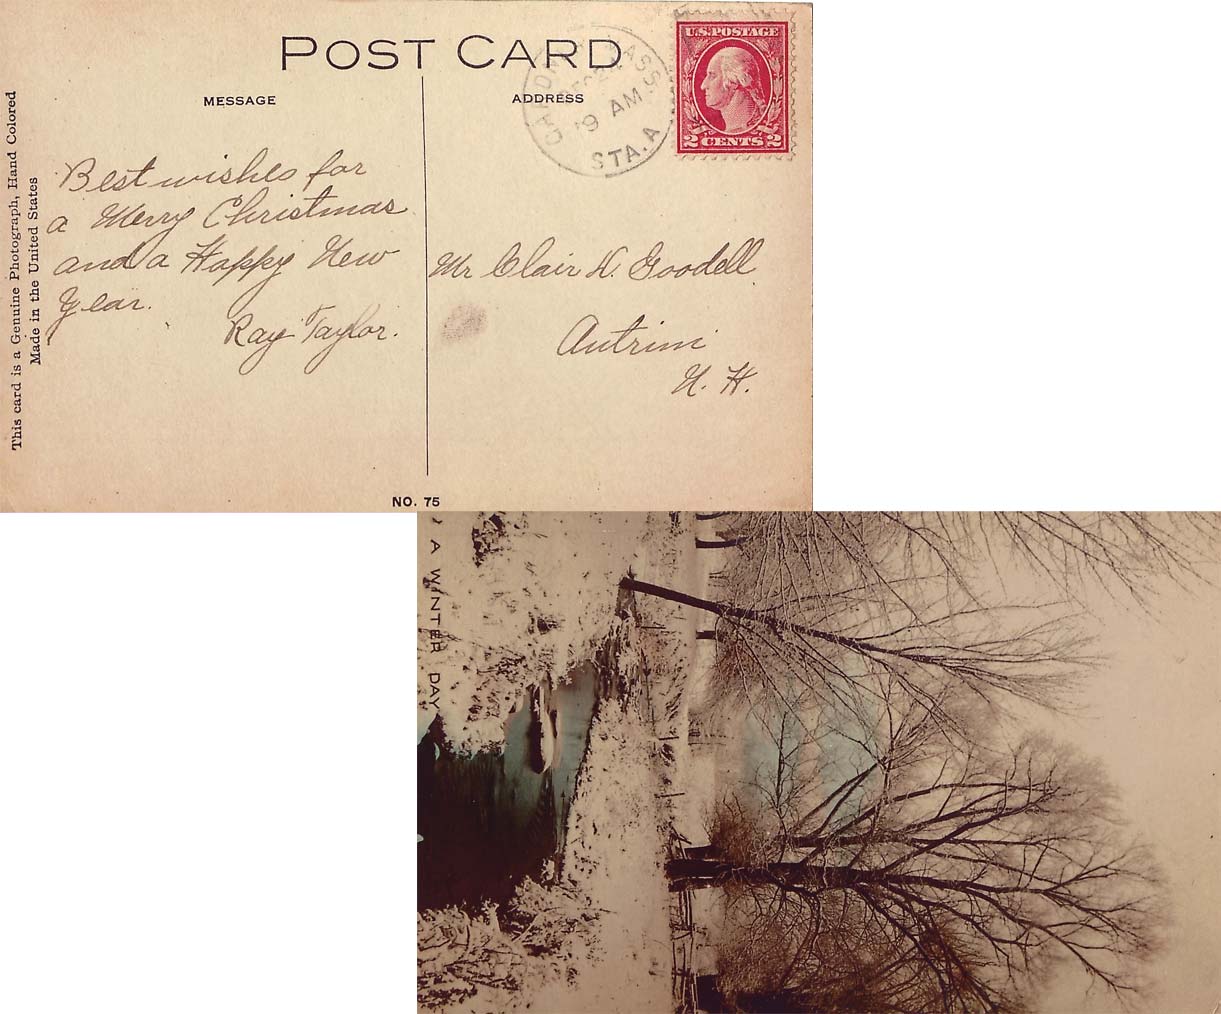 POST CARD
MESSAGE
ADDRESS
U.S. POSTAGE
2 CENTS 2
MASS
9 AM
STA. A
This card is a Genuine Photograph, Hand Colored
Made in the United States
Best wishes for
a Merry Christmas
and a Happy New
Year.
Ray Taylor.
Mr Clair D. Goodell
Antrim
N. H.
NO. 75
A WINTER DAY